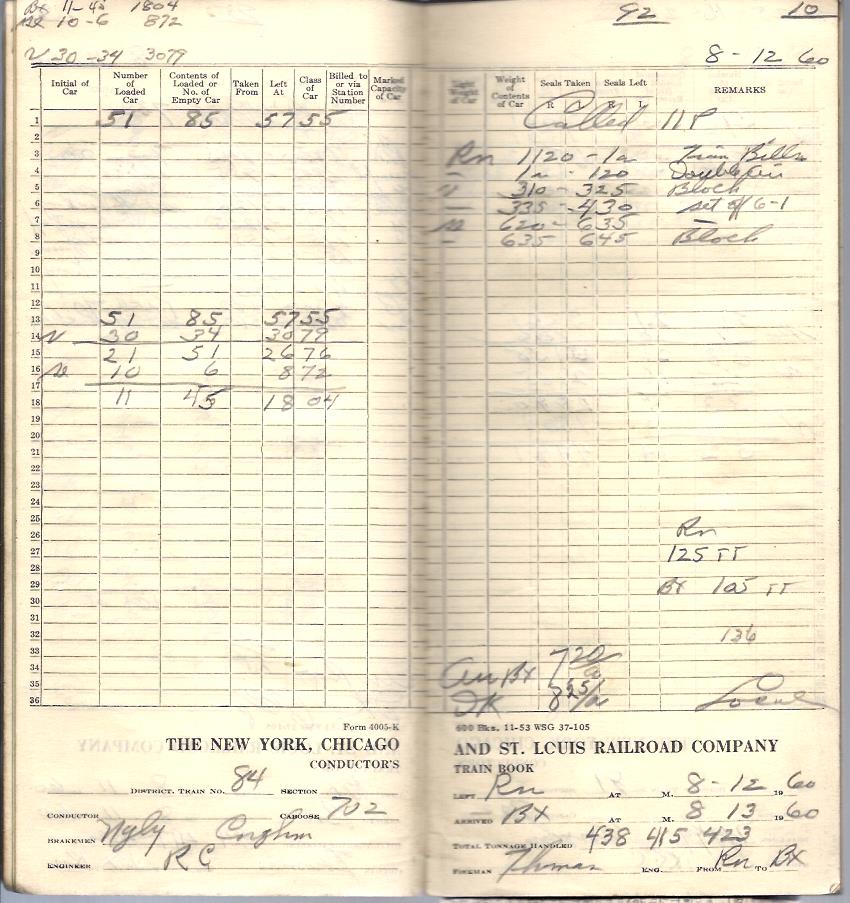 Bx 11-45 1804
10-6 872
92 10
V 30-34 3079
8-12 60
Initial of Car Number of Loaded Car Contents of Loaded or No. of Empty Car Taken From Left At Class of Car Billed to or via Station Number Marked Capacity of Car Light Weight of Car Weight of Contents of Car Seals Taken R L Seals Left R L REMARKS
1 51 85 57 55 Called 11P
2
3 Rn 1120 - 1a Train Bills
4 1a - 120 Double air
5 V 310 - 325 Block
6 335 - 430 set off 6-1
7 620 - 635 -
8 635 645 Block
9
10
11
12
13 51 85 57 55
14 V 30 34 30 79
15 21 51 26 76
16 10 6 8 72
17
18 11 45 18 04
19
20
21
22
23
24
25
26 Rn
27 125 TT
28
29 Bx 105 TT
30
31
32 136
33
34 Arr Bx 720/a
35
36 825/a Local
Form 4005-K 600 Bks. 11-53 WSG 37-105
THE NEW YORK, CHICAGO AND ST. LOUIS RAILROAD COMPANY
CONDUCTOR'S TRAIN BOOK
DISTRICT. TRAIN NO. 84 SECTION
LEFT Rn AT M. 8-12 1960
CONDUCTOR CABOOSE 702
ARRIVED Bx AT M. 8 13 1960
BRAKEMEN
TOTAL TONNAGE HANDLED 438 415 423
ENGINEER R C
FIREMAN Thomas ENG. FROM Rn TO Bx